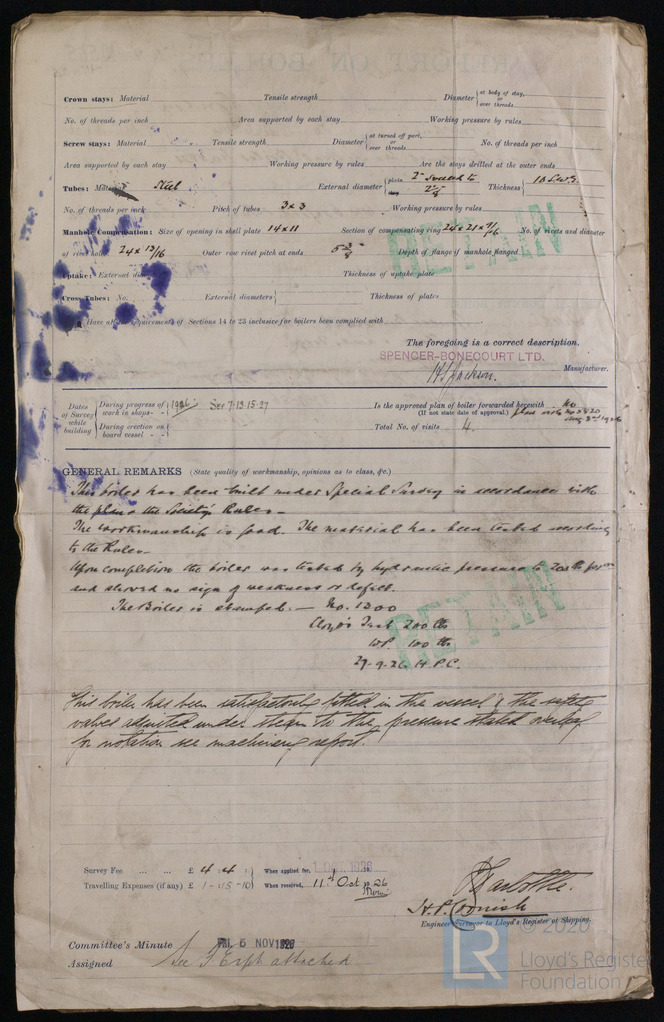 Crown stays: Material Tensile strength Diameter at body of stay, or over threads
No. of threads per inch Area supported by each stay Working pressure by rules
Screw stays: Material Tensile strength Diameter at turned off part, or over threads No. of threads per inch
Area supported by each stay Working pressure by rules Are the stays drilled at the outer ends
Tubes: Material Steel External diameter plain 2" swelled to stay 2 1/8 Thickness 10 L.S.G.
No. of threads per inch Pitch of tubes 3 x 3 Working pressure by rules
Manhole Compensation: Size of opening in shell plate 14 x 11 Section of compensating ring 24 x 21 x 9/16 No. of rivets and diameter
of rivet holes 24 x 13/16 Outer row rivet pitch at ends 5 3/8" Depth of flange if manhole flanged
Uptake: External Thickness of uptake plate
Cross Tubes: No. External diameters Thickness of plates
Have all requirements of Sections 14 to 23 inclusive for boilers been complied with
RETAIN
The foregoing is a correct description.
SPENCER-BONECOURT LTD.
Jackson. Manufacturer.
Dates of Survey while building During progress of work in shops - - 1926 Sep 7-13-15-27 Is the approved plan of boiler forwarded herewith No
(If not state date of approval)
During erection on board vessel - - - Total No. of visits 4.
GENERAL REMARKS (State quality of workmanship, opinions as to class, &c.)
This boiler has been built under Special Survey in accordance with
the plan & the Society's Rules -
The workmanship is good. The material has been tested according
to the Rules -
Upon completion the boiler was tested by hydraulic pressure to 200 lb
and showed no sign of weakness or defect.
The Boiler is stamped. - No. 1200
Lloyd's Test 200 lb
WP. 100 lb
27-9-26 H.P.C.
RETAIN
This boiler has been satisfactorily fitted in the vessel & the safety
valves adjusted under steam to the pressure stated overleaf
for notation see machinery report.
Survey Fee ... ... £ 4 : 4 : When applied for, 1 OCT 1926
Travelling Expenses (if any) £ 1 - 15 - 10 When received, 11th Oct 1926
H.P. Cornish
Engineer Surveyor to Lloyd's Register of Shipping.
Committee's Minute FRI. 5 NOV 1926
Assigned See attached
© 2020
LR
Lloyd's Register
Foundation